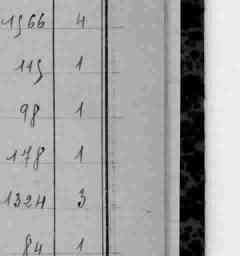 1566 4
115 1
98 1
178 1
1324 3
84 1